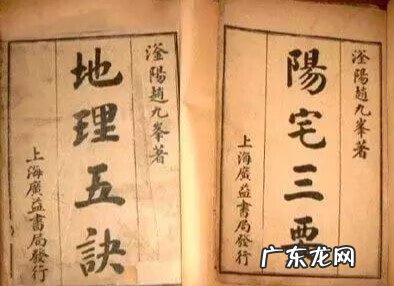 陽宅三要
滏陽趙九峯著
上海廣益書局發行
滏陽趙九峯著
地理五訣
上海廣益書局發行
广东龙网